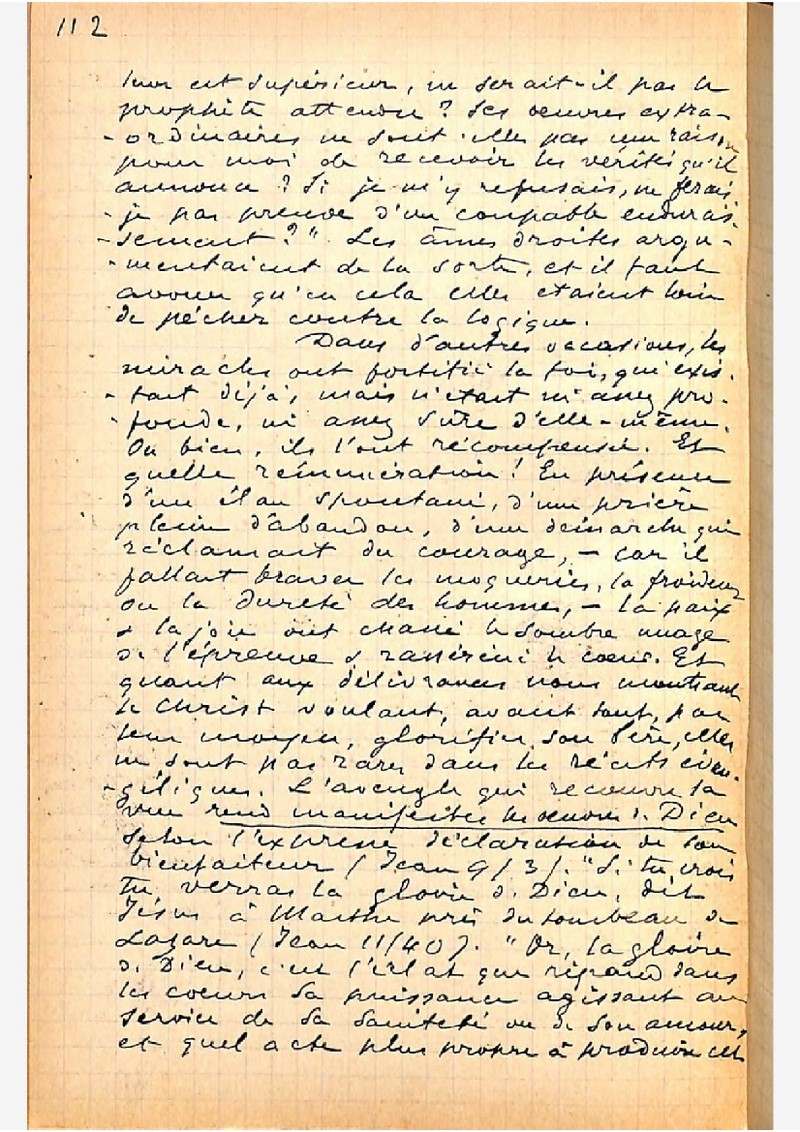 112
leur est supérieur, ne serait-il pas le
prophète attendu ? Ses oeuvres extra-
-ordinaires ne sont-elles pas une raison
pour moi de recevoir les vérités qu'il
annonce ? Si je m'y refusais, ne ferais
-je pas preuve d'un coupable endurcis-
-sement ?" Les âmes droites argu-
-mentaient de la sorte, et il faut
avouer qu'en cela elles étaient loin
de pécher contre la logique.
Dans d'autres occasions, les
miracles ont fortifié la foi, qui exis-
-tait déjà, mais n'était ni assez pro-
-fonde, ni assez sûre d'elle-même.
Ou bien, ils l'ont récompensée. Et
quelle rémunération ! En présence
d'un élan spontané, d'une prière
pleine d'abandon, d'une démarche qui
réclamait du courage, - car il
fallait braver les moqueries, la froideur
ou la dureté des hommes, - la paix
& la joie ont chassé le sombre nuage
de l'épreuve & rasséréné le coeur. Et
quant aux délivrances nous montrant
le Christ voulant, avant tout, par
leur moyen, glorifier son Père, elles
ne sont pas rares dans les récits évan-
-géliques. L'aveugle qui recouvre la
vue rend manifestes les oeuvres de Dieu
selon l'expresse déclaration de son
bienfaiteur (Jean 9/3). "Si tu crois
tu verras la gloire de Dieu, dit
Jésus à Marthe près du tombeau de
Lazare (Jean 11/40). "Or, la gloire
de Dieu, c'est l'éclat que répand dans
les coeurs sa puissance agissant au
service de sa sainteté ou de son amour,
et quel acte plus propre à produire cet